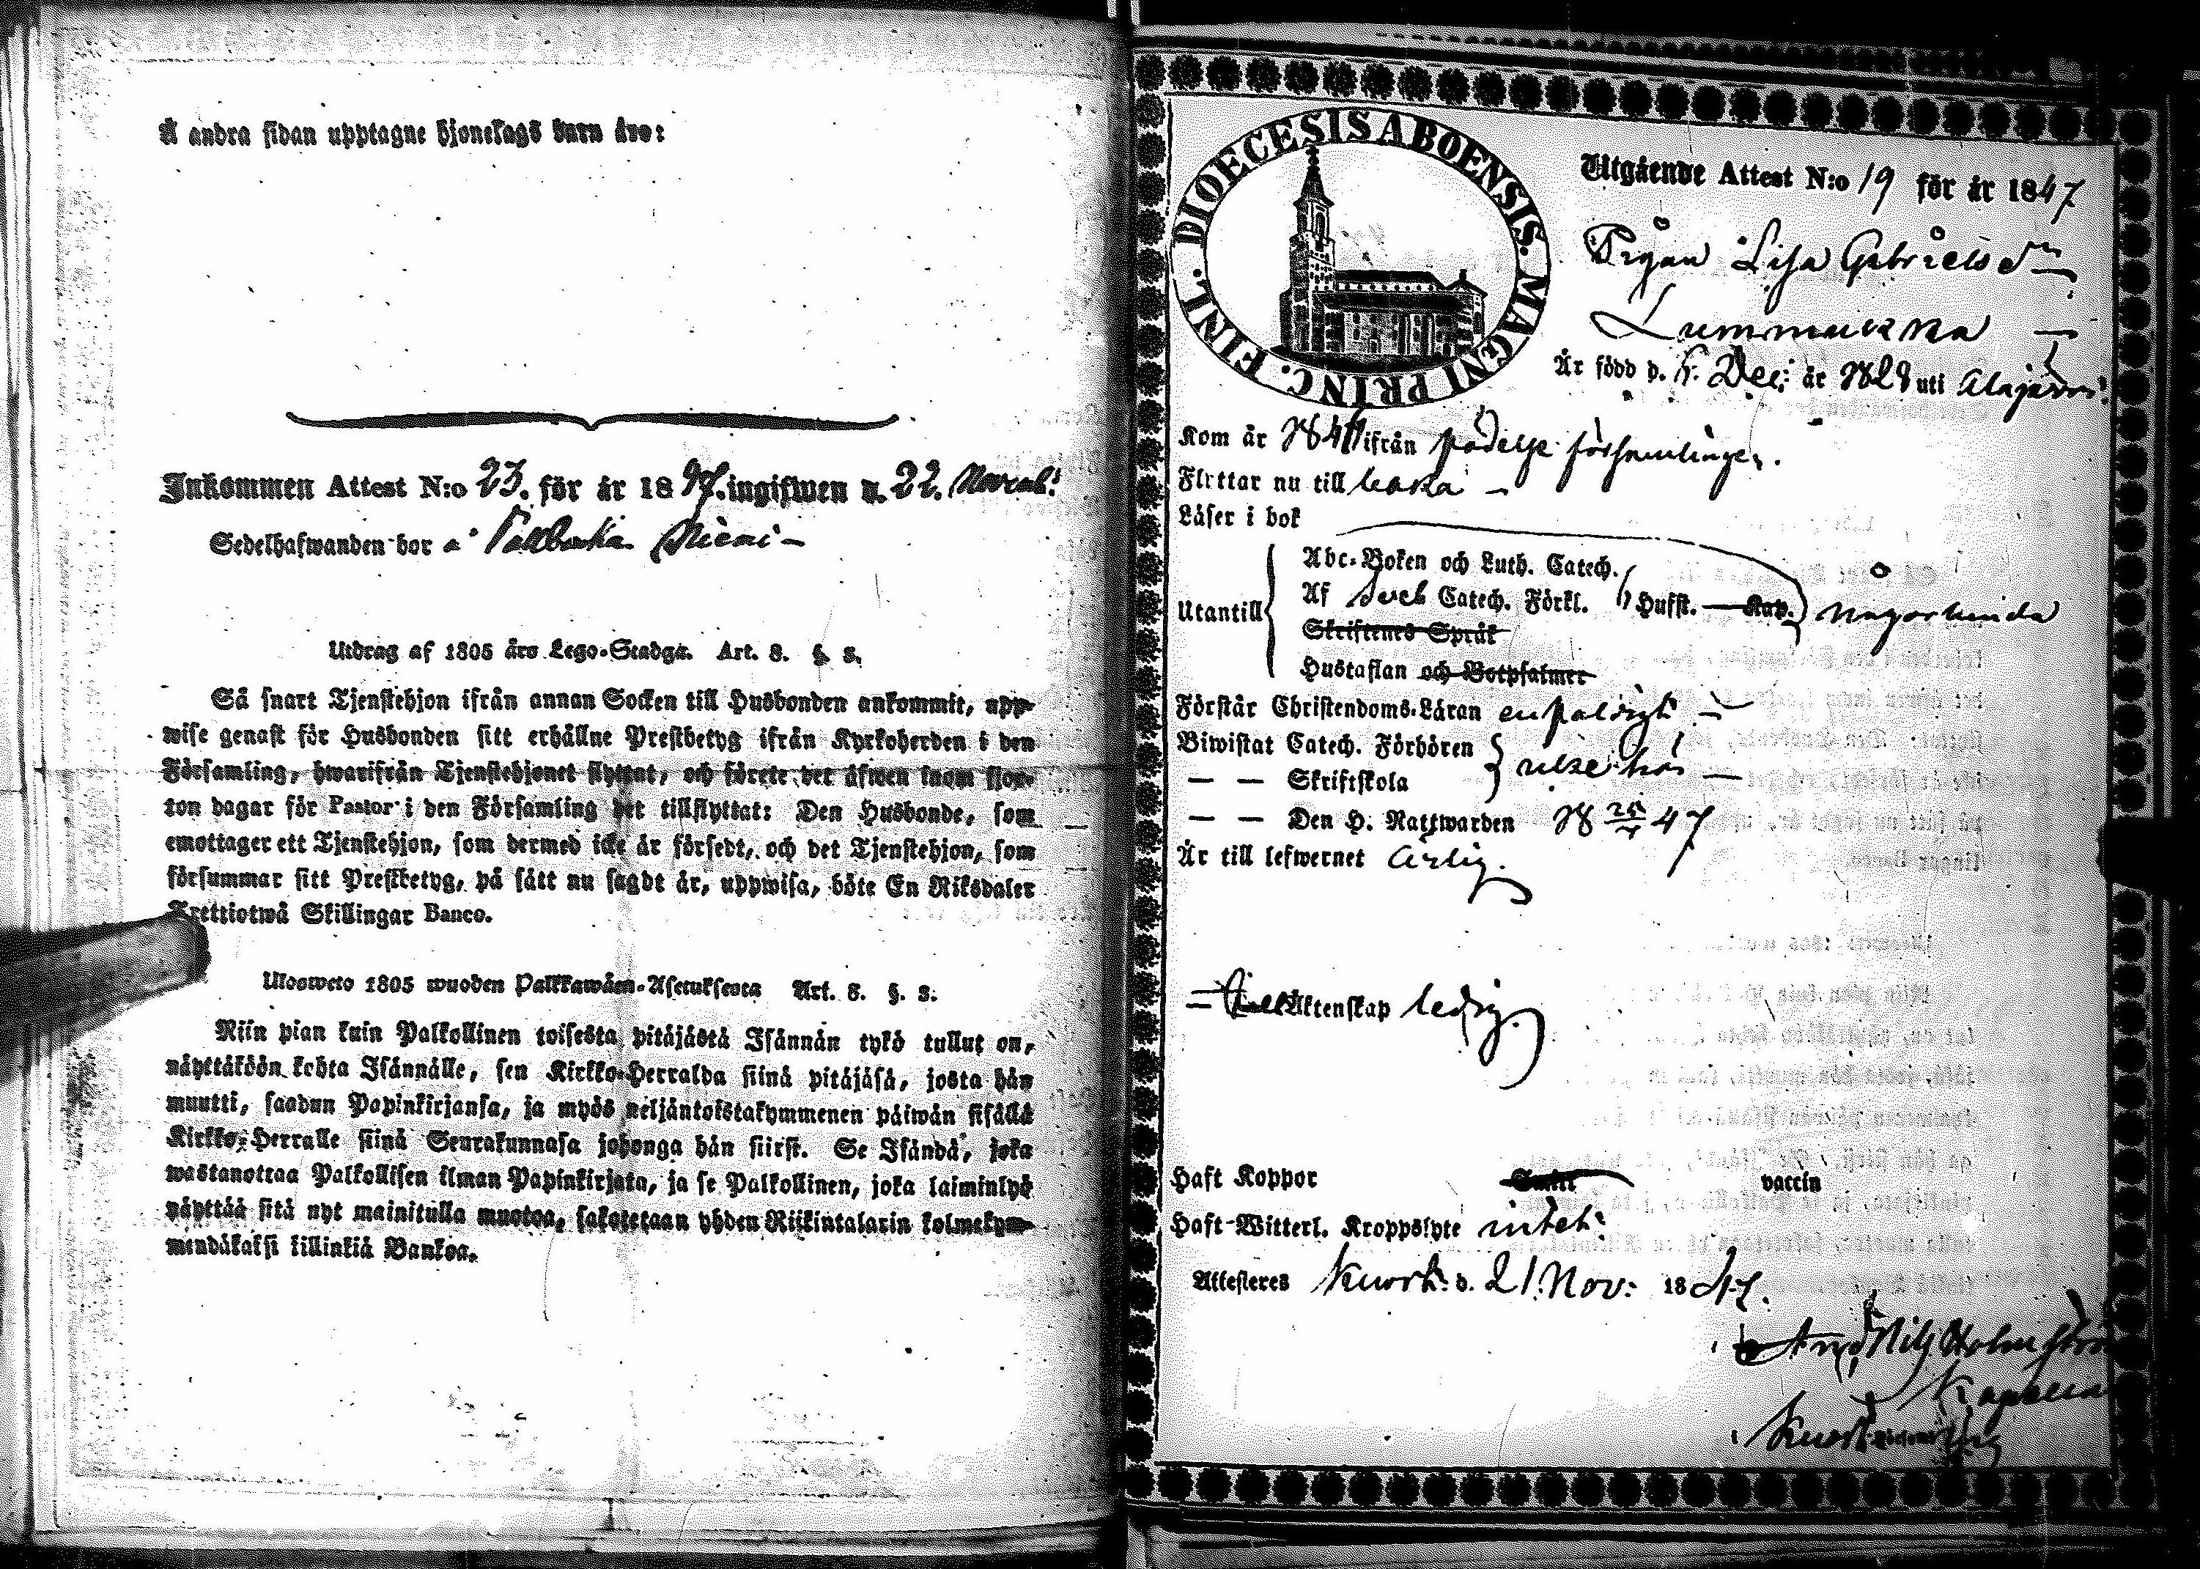 Å andra sidan upptagne hjonelags barn äro:
Inkommen Attest N:o 23. för år 1847. ingifwen d. 22. Novemb:
Sedelhafwanden bor å Niemi –
Utdrag af 1805 års Lego-Stadga. Art. 8. §. 8.
Så snart Tjenstehjon ifrån annan Socken till Husbonden ankommit, upp-
wise genast för Husbonden sitt erhållne Prestbetyg ifrån Kyrkoherden i den
Församling, hwarifrån Tjenstehjonet flyttat, och förete det äfwen inom fjor-
ton dagar för Pastor i den Församling det tillflyttat: Den Husbonde, som
emottager ett Tjenstehjon, som dermed icke är försedt, och det Tjenstehjon, som
försummar sitt Prestbetyg, på sätt nu sagdt är, uppwisa, böte En Riksdaler
Trettiotwå Skillingar Banco.
Ulosweto 1805 wuoden Palkkawäen-Asetuksesta Art. 8. §. 8.
Niin pian kuin Palkollinen toisesta pitäjästä Isännän tykö tullut on,
näyttäköön kohta Isännälle, sen Kirkko-Herralda siinä pitäjäsä, josta hän
muutti, saadun Papinkirjansa, ja myös neljäntoistakymmenen päiwän sisällä
Kirkko-Herralle siinä Seurakunnasa johonga hän siirst. Se Isändä, joka
wastanottaa Palkollisen ilman Papinkirjata, ja se Palkollinen, joka laiminlyö
näyttää sitä nyt mainitulla muotoa, sakotetaan yhden Riikintalarin kolmekym-
mendäkaksi killinkiä Bankoa.
DIOECESIS ABOENSIS. MAGNI PRINC. FINL.
Utgående Attest N:o 19 för år 1847
Pigan Lisa Gabrielsdr
Lummukka –
Är född d. 6. Dec: år 1828 uti Alajärvi
Kom år 1846 ifrån födelse församlingen.
Flyttar nu till –
Läser i bok
Utantill
Abc-Boken och Luth. Catech.
Af Sveb Catech. Förkl. 6 Hufst. Kap.
någorlunda
Skriftenes Språk
Hustaflan och Botpsalmer
Förstår Christendoms-Läran enfaldigt –
Biwistat Catech. Förhören
— — Skriftskola
— — Den H. Nattwarden 18 25/7 47
Är till lefwernet ärlig.
– Till Äktenskap ledig.
Haft Koppor Smitt vaccin
Haft Witterl. Kroppslyte intet.
Attesteras Kuort: d. 21. Nov: 1847.
And Nils Holmström
Kapellan